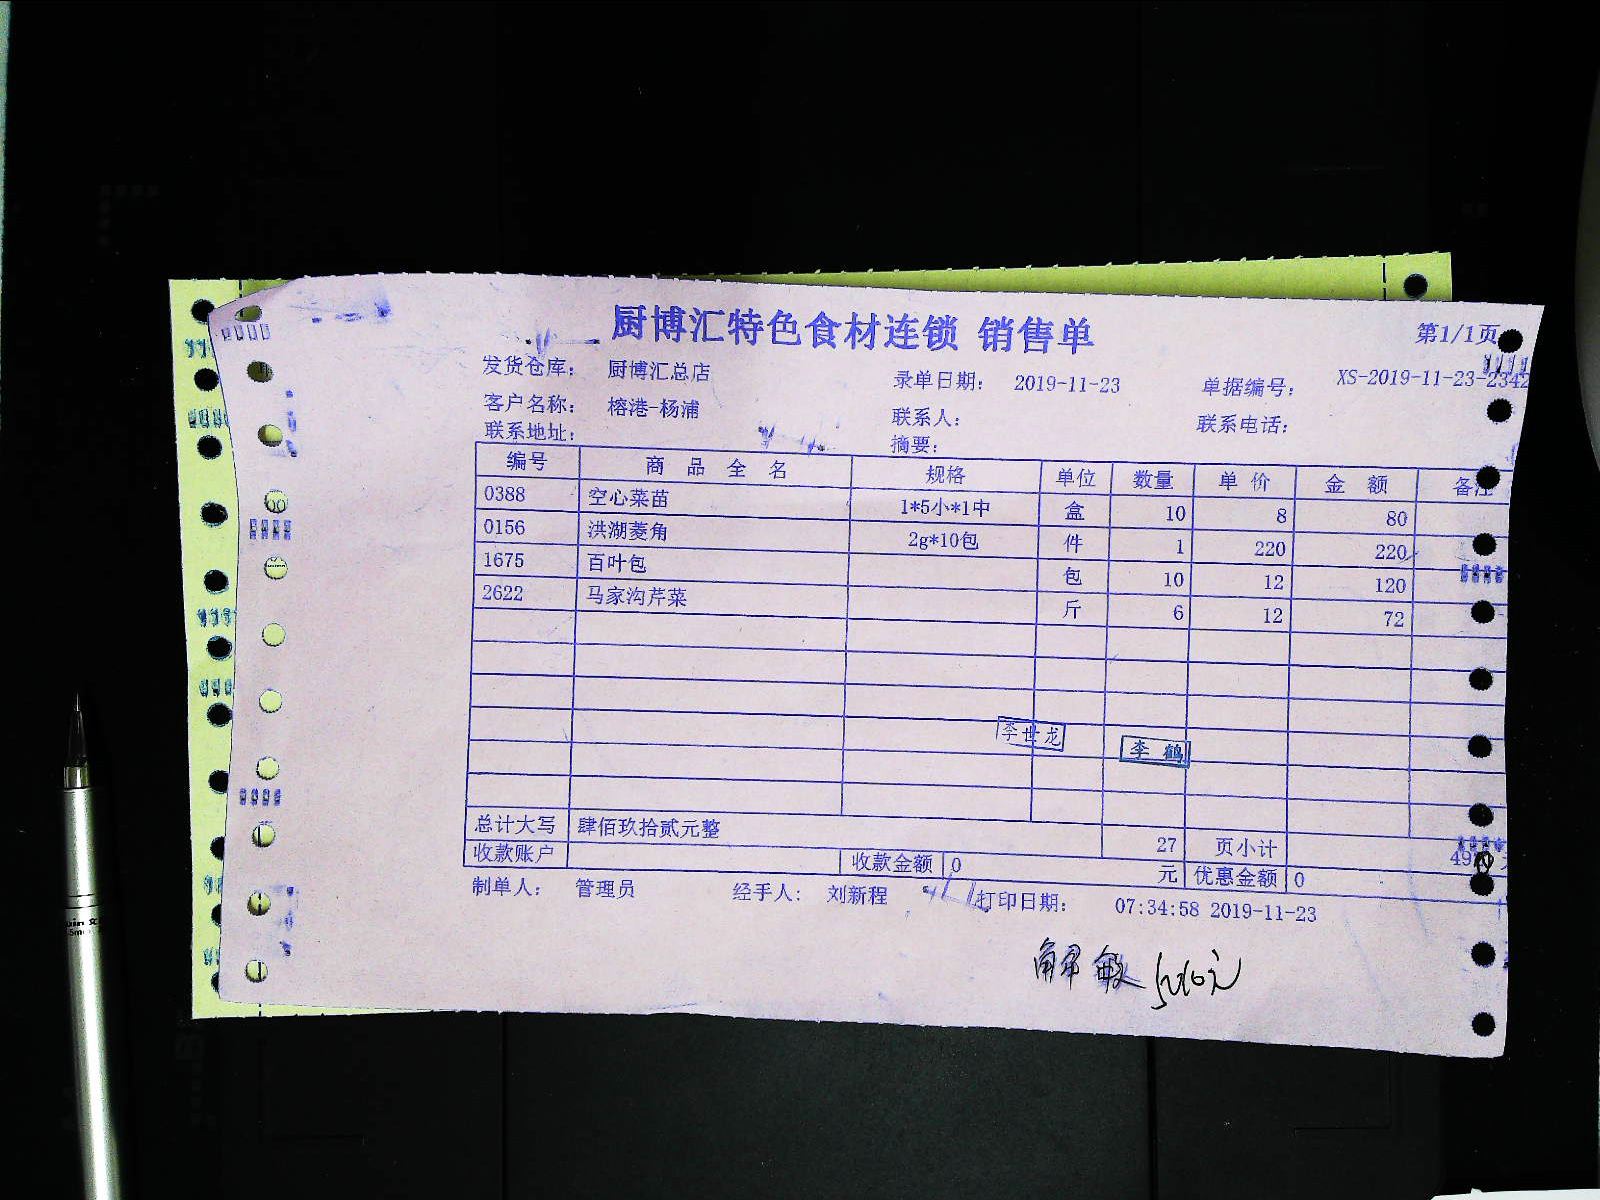 厨博汇特色食材连锁 销售单
第1/1页
发货仓库： 厨博汇总店 录单日期： 2019-11-23 单据编号： XS-2019-11-23-2342
客户名称： 榕港-杨浦 联系人： 联系电话：
联系地址： 摘要：
编号 商品全名 规格 单位 数量 单价 金额 备注
0388 空心菜苗 1*5小*1中 盒 10 8 80
0156 洪湖菱角 2g*10包 件 1 220 220
1675 百叶包 包 10 12 120
2622 马家沟芹菜 斤 6 12 72
李世龙
李鹤
总计大写 肆佰玖拾贰元整 27 页小计
收款账户 收款金额 0 元 优惠金额 0
制单人： 管理员 经手人： 刘新程 打印日期： 07:34:58 2019-11-23
解敏